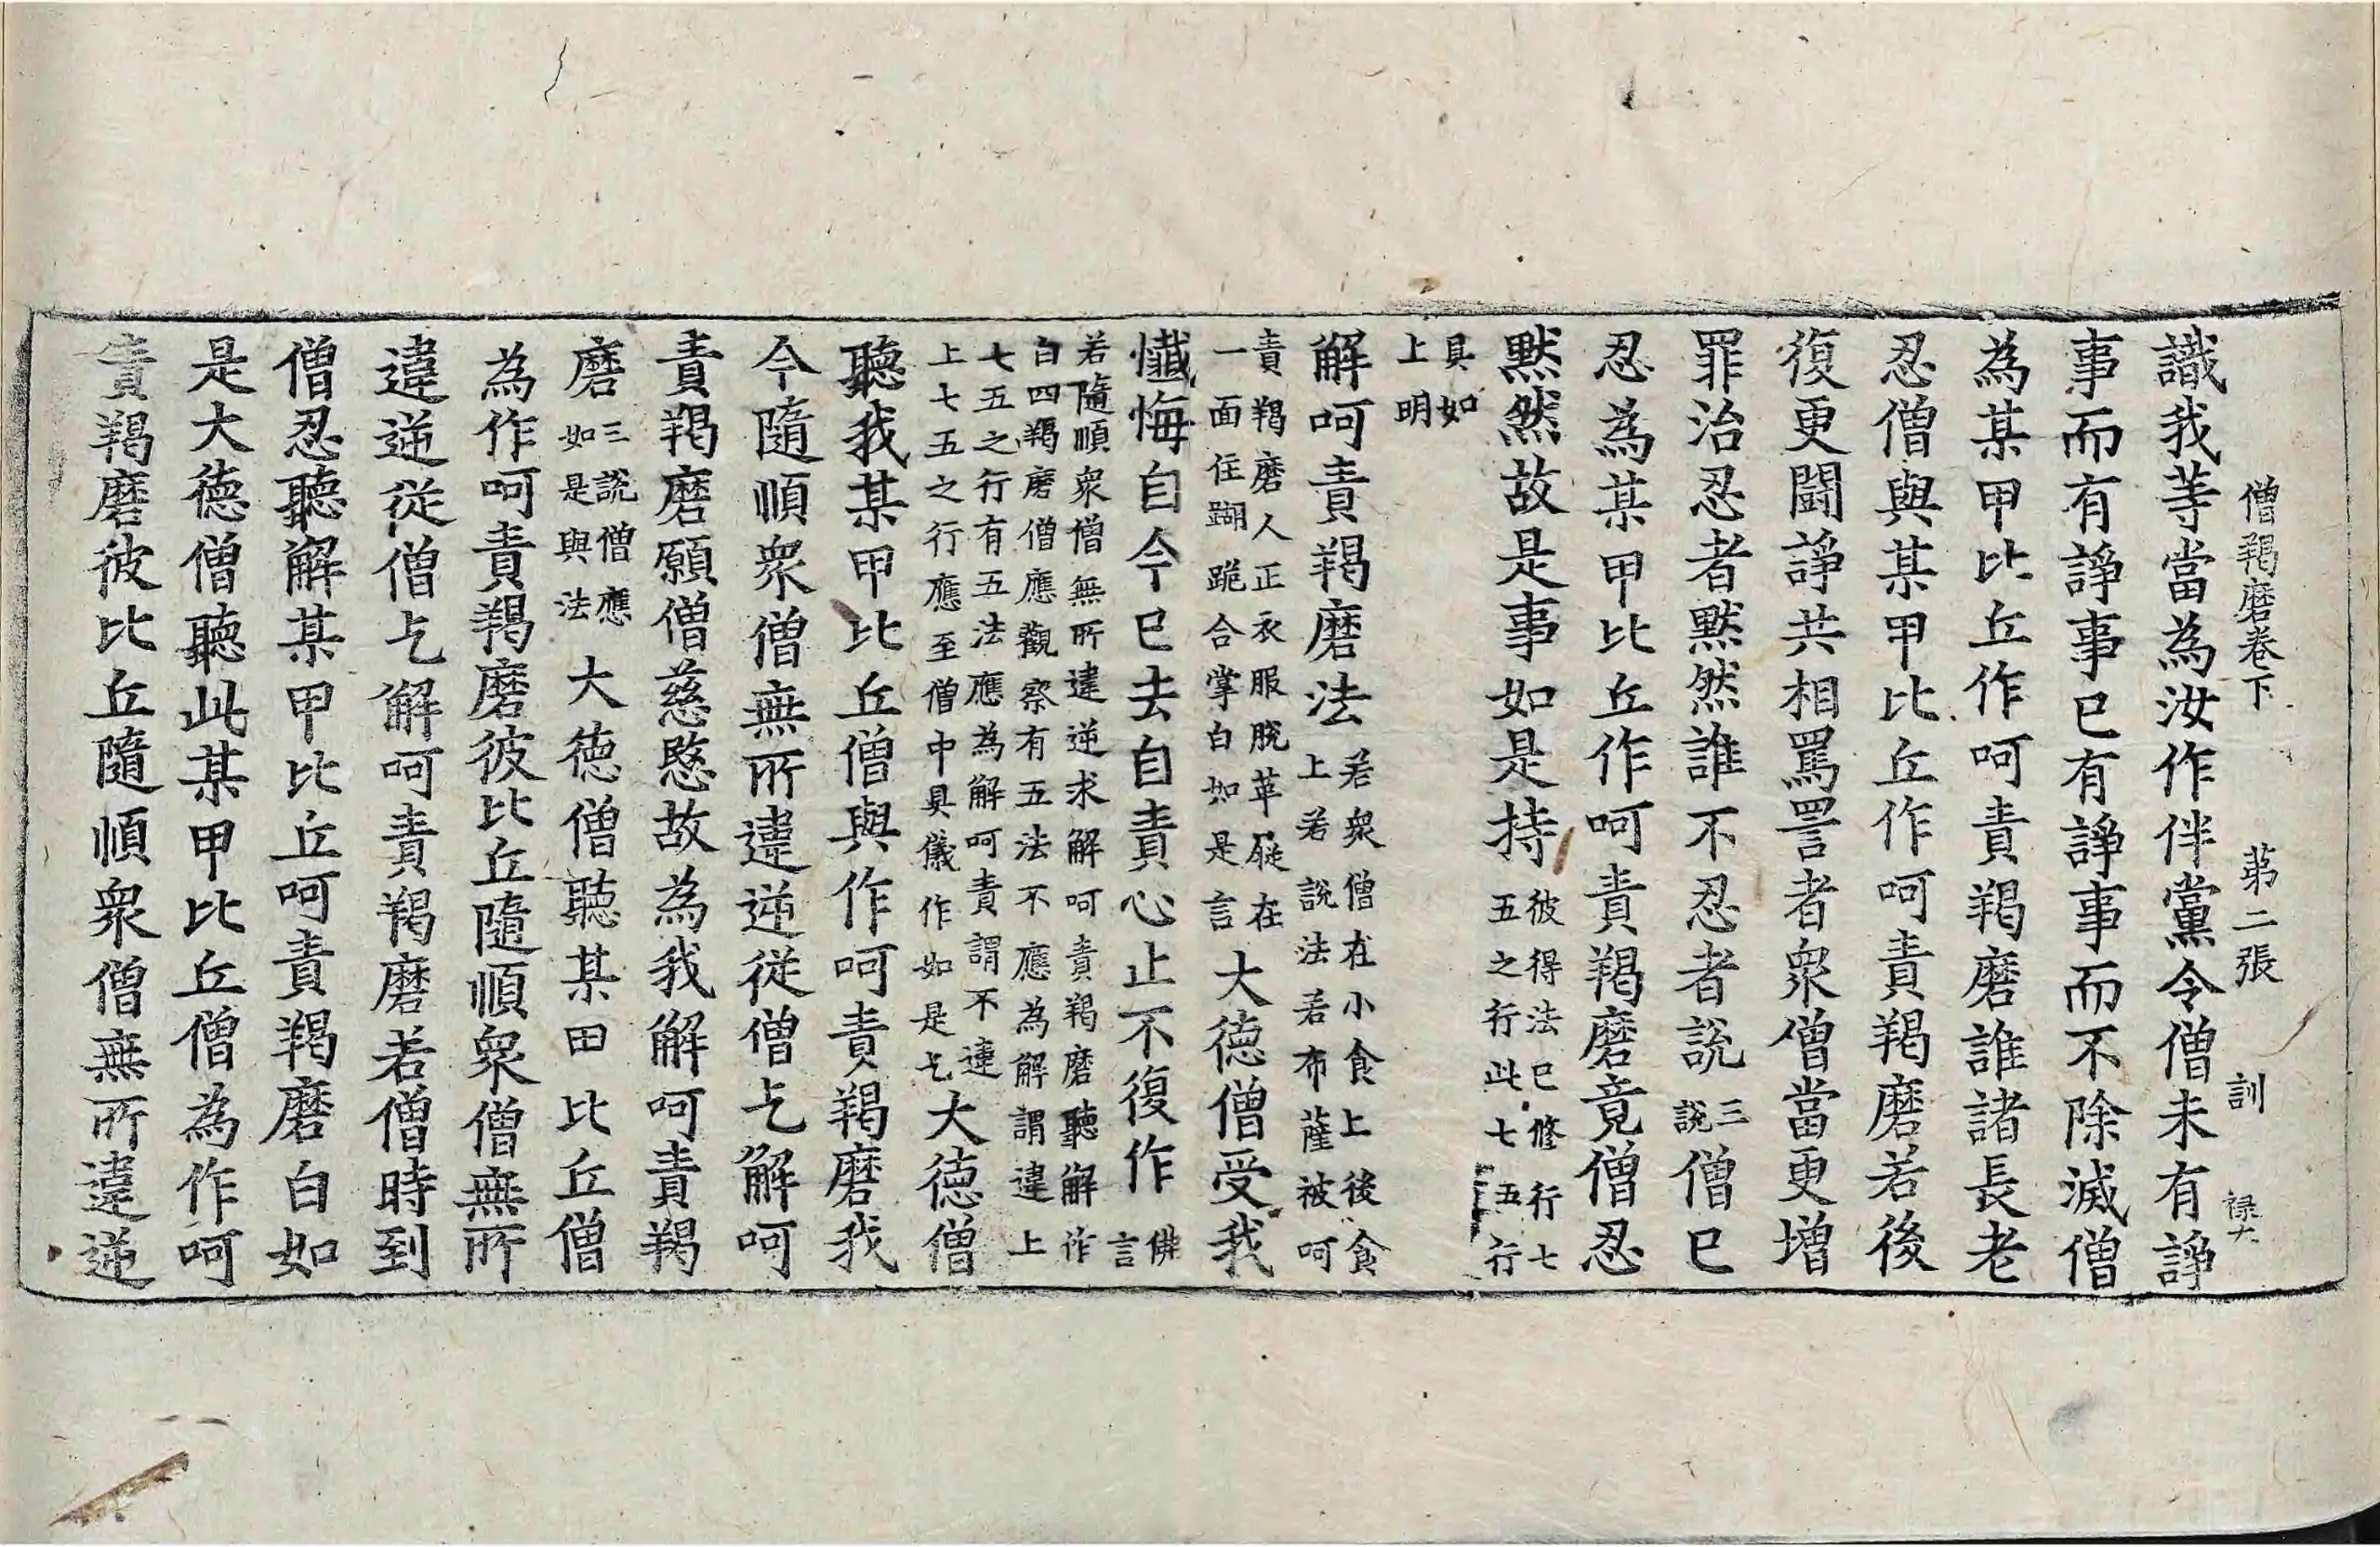 僧羯磨卷下　苐二張　訓　禄六
識我等當為汝作伴黨令僧未有諍
事而有諍事已有諍事而不除滅僧
為某甲比丘作呵責羯磨誰諸長老
忍僧與某甲比丘作呵責羯磨若後
復更鬪諍共相罵詈者衆僧當更增
罪治忍者默然誰不忍者說三說僧已
忍為某甲比丘作呵責羯磨竟僧忍
默然故是事如是持彼得法已修行七五之行此七五行
具如上明
解呵責羯磨法若衆僧在小食上後食上若說法若布薩被呵
責羯磨人正衣服脫革屣在一面住𨄔跪合掌白如是言大德僧受我
懺悔自今已去自責心止不復作佛言
若隨順衆僧無所違逆求解呵責羯磨聽解作
白四羯磨僧應觀察有五法不應為解謂違上
七五之行有五法應為解呵責謂不違
上七五之行應至僧中具儀作如是乞大德僧
聽我某甲比丘僧與作呵責羯磨我
今隨順衆僧無所違逆從僧乞解呵
責羯磨願僧慈愍故為我解呵責羯
磨三說僧應如是與法　大德僧聽某甲比丘僧
為作呵責羯磨彼比丘隨順衆僧無所
違逆從僧乞解呵責羯磨若僧時到
僧忍聽解某甲比丘呵責羯磨白如
是大德僧聽此某甲比丘僧為作呵
責羯磨彼比丘隨順衆僧無所違逆